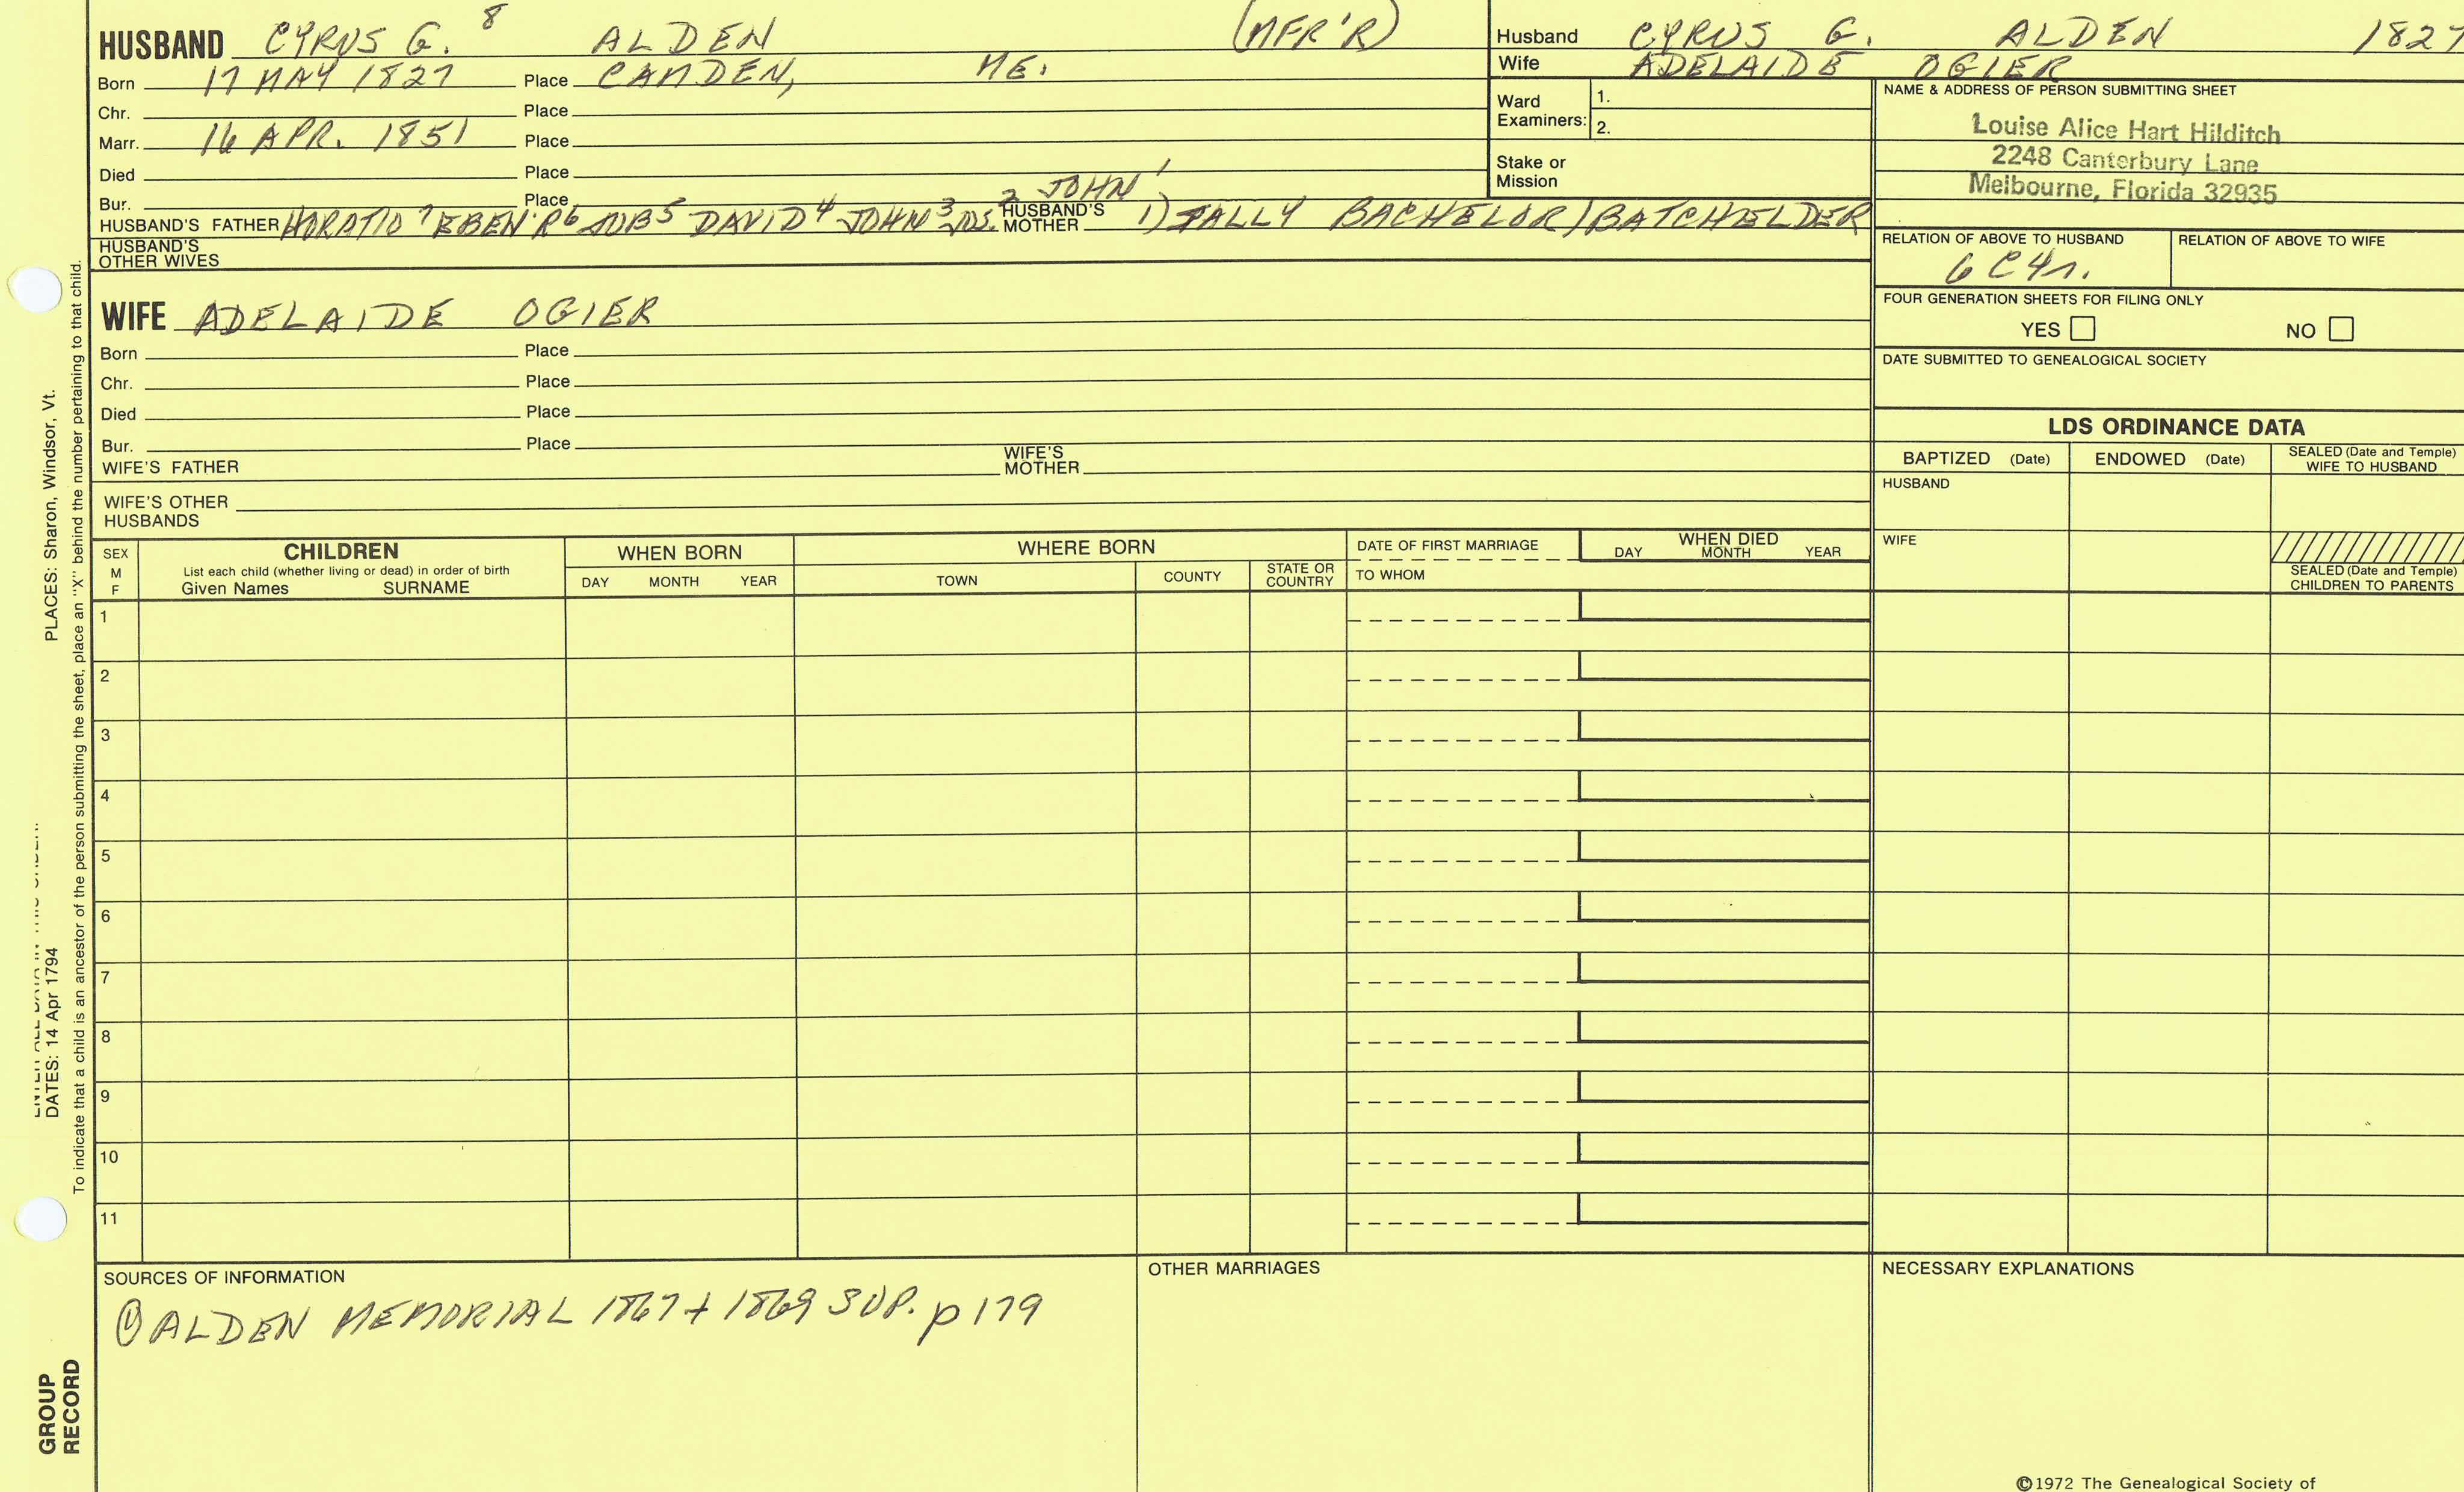 HUSBAND CYRUS G. 8 ALDEN (MFR'R)
Born 17 MAY 1827 Place CAMDEN, ME.
Chr. Place
Marr. 16 APR. 1851 Place
Died Place
Bur. Place
HUSBAND'S FATHER HORATIO 7 EBEN'R 6 JOB 5 DAVID 4 JOHN 3 JOS. 2 JOHN 1 HUSBAND'S MOTHER 1) SALLY BACHELOR/BATCHELDER
HUSBAND'S OTHER WIVES
Husband CYRUS G. ALDEN 1827
Wife ADELAIDE OGIER
Ward Examiners: 1.
2.
Stake or Mission
NAME & ADDRESS OF PERSON SUBMITTING SHEET
Louise Alice Hart Hilditch
2248 Canterbury Lane
Melbourne, Florida 32935
RELATION OF ABOVE TO HUSBAND RELATION OF ABOVE TO WIFE
6C4r.
FOUR GENERATION SHEETS FOR FILING ONLY
YES NO
DATE SUBMITTED TO GENEALOGICAL SOCIETY
WIFE ADELAIDE OGIER
Born Place
Chr. Place
Died Place
Bur. Place
WIFE'S FATHER WIFE'S MOTHER
WIFE'S OTHER HUSBANDS
LDS ORDINANCE DATA
BAPTIZED (Date) ENDOWED (Date) SEALED (Date and Temple) WIFE TO HUSBAND
HUSBAND
WIFE
SEALED (Date and Temple) CHILDREN TO PARENTS
SEX M F
CHILDREN
List each child (whether living or dead) in order of birth
Given Names SURNAME
WHEN BORN
DAY MONTH YEAR
WHERE BORN
TOWN COUNTY STATE OR COUNTRY
DATE OF FIRST MARRIAGE
TO WHOM
WHEN DIED
DAY MONTH YEAR
1
2
3
4
5
6
7
8
9
10
11
SOURCES OF INFORMATION
① ALDEN MEMORIAL 1867 + 1869 SUP. p 179
OTHER MARRIAGES
NECESSARY EXPLANATIONS
©1972 The Genealogical Society of
PLACES: Sharon, Windsor, Vt.
DATES: 14 Apr 1794
To indicate that a child is an ancestor of the person submitting the sheet, place an "X" behind the number pertaining to that child.
GROUP
RECORD